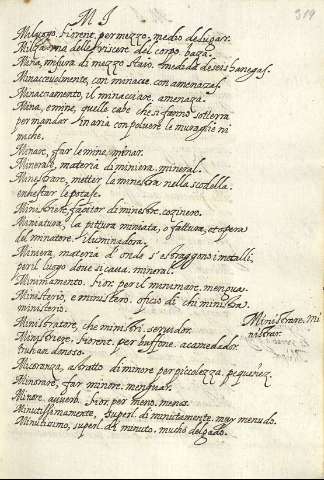 M I
319
Miluogo, fiorent. per mezzo. medio de lugar.
Milza una delle viscere del corpo. baza.
Mina, misura di mezzo staio. medida de seis hanegas.
Minaccevolmente, con minacce. con amenazas.
Minacciamento, il minacciare. amenaza.
Mina, e mine, quelle cabe che si fanno sotterra
per mandar in aria con polvere le muraglie ni
miche.
Minare, far le mine, minar.
Minerale, materia di miniera. mineral.
Minestrare, metter, la minestra nella scodella.
enhestar le potaje.
Minestriere, facitor di minestre. cozinero.
Miniatura, la pittura miniata, o fattura, et opera
del miniatore. iluminadora.
Miniera, materia d'onde s'estraggono i metalli,
per il luogo donde si cava. mineral.
Minimamento. fior. per il minimare. mengua.
Ministerio, e ministero. oficio di chi ministra.
ministerio.
Ministrare. mi
nistrar.
Ministratore, che ministri. servidor.
Ministriere. fiorent. per buffone. acamedador.
truhan donoso.
Minoranza, astratto di minore per piccolezza. pequeñez.
Minorare, far minore. menguar.
Minore. avverb. fior. per meno. menos.
Minutissimamente, superl. di minutamente. muy menudo.
Minutissimo, superl. di minuto. mucho delgado.